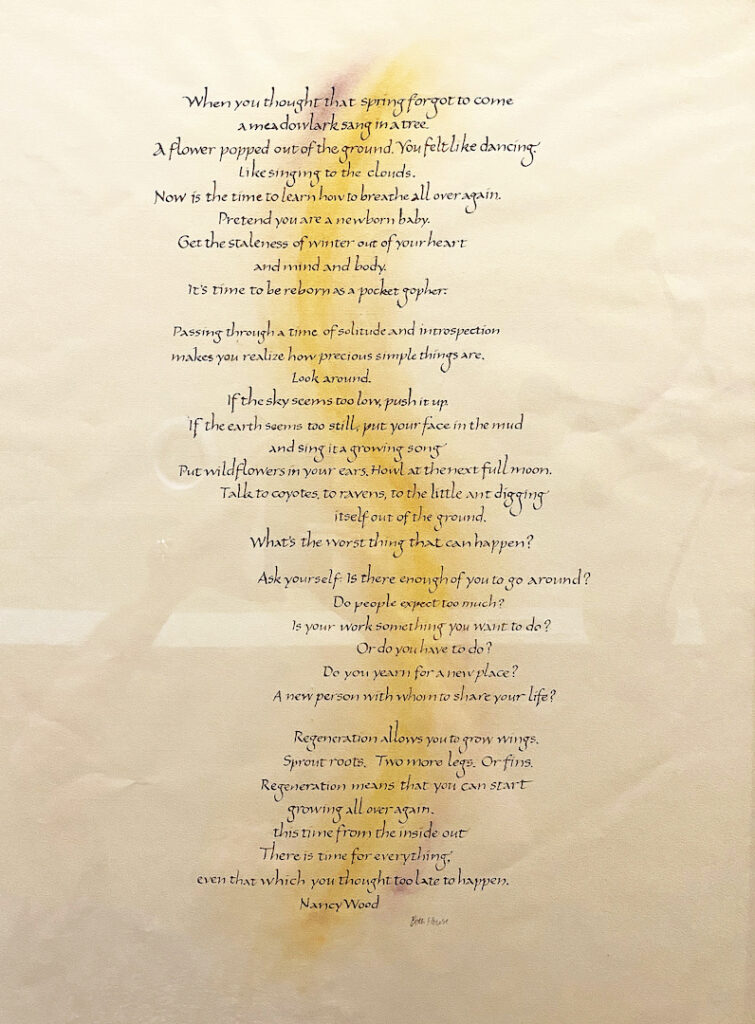 When you thought that spring forgot to come
a meadowlark sang in a tree.
A flower popped out of the ground. You felt like dancing.
Like singing to the clouds.
Now is the time to learn how to breathe all over again.
Pretend you are a newborn baby.
Get the staleness of winter out of your heart
and mind and body.
It's time to be reborn as a pocket gopher.
Passing through a time of solitude and introspection
makes you realize how precious simple things are.
Look around.
If the sky seems too low, push it up
If the earth seems too still, put your face in the mud
and sing it a growing song
Put wildflowers in your ears. Howl at the next full moon.
Talk to coyotes, to ravens, to the little ant digging
itself out of the ground.
What's the worst thing that can happen?
Ask yourself: Is there enough of you to go around?
Do people expect too much?
Is your work something you want to do?
Or do you have to do?
Do you yearn for a new place?
A new person with whom to share your life?
Regeneration allows you to grow wings.
Sprout roots. Two more legs. Or fins.
Regeneration means that you can start
growing all over again.
this time from the inside out
There is time for everything,
even that which you thought too late to happen.
Nancy Wood